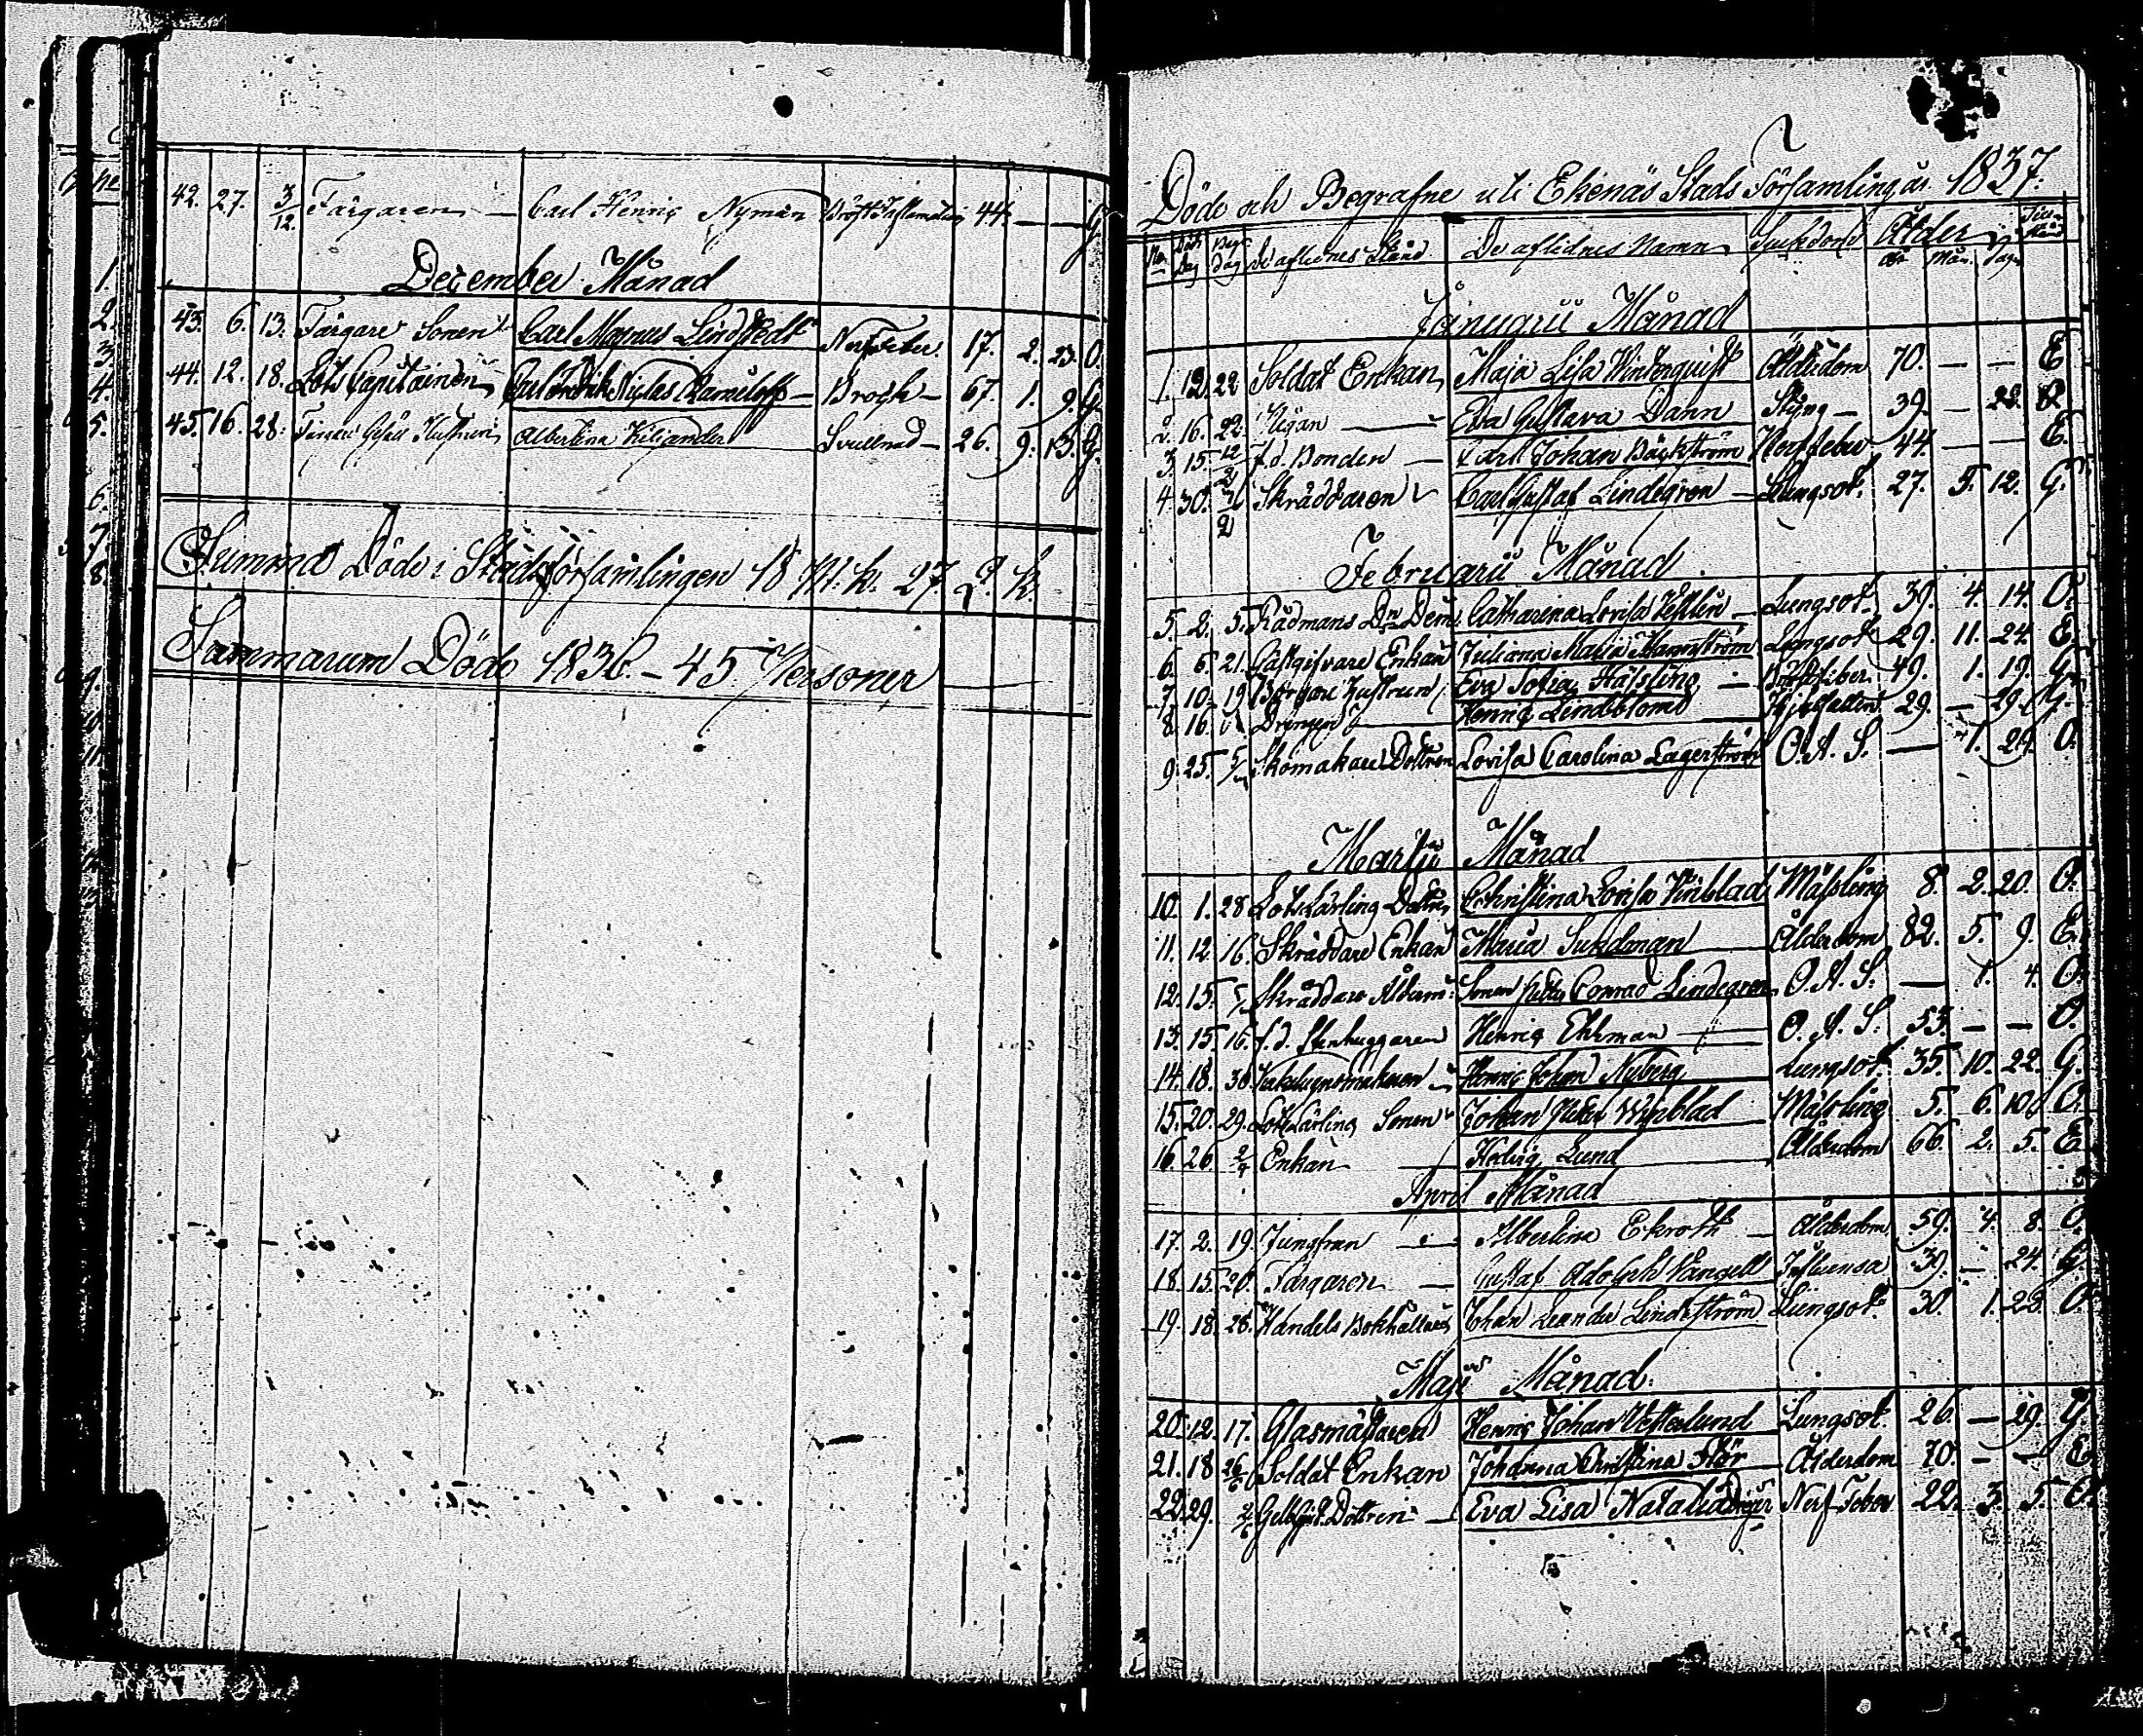 42. 27. 3/12. Färgaren — Carl Henric Nyman 44. — — G.
December Månad
43. 6. 13. Färgare Sonen Carl Magnus Lindstedt Nerffeber 17. 2. 23. O.
44. 12. 18. Lots Capitainen Carl Fredrik Niclas Brock — 67. 1. 9. G.
45. 16. 28. Hustrun Albertina Kiljander Svullnad — 26. 9. 13. G.
Summa Döde i Stadsförsamlingen 18 M. k. 27 Q. k.
Summarum Döde 1836. — 45 Personer
Döde och Begrafne uti Ekenäs Stads Församling år 1837.
No. Död Dag Begr. Dag De aflednes Stånd. De aflidnes Namn Sjukdom Ålder År Mån. Dagar
Januarii Månad
1. 12. 22 Soldat Enkan Maja Lisa Winterquist Ålderdom 70. — — E
2. 16. 22. Pigan — Eva Gustava Dann Styng — 39. — 22. O
3. 15. 12/2 f.d. Bonden — Carl Johan Bäckström Nerffeber 44. — — E.
4. 30. Skräddaren Carl Gustaf Lindegren — Lungsot. 27. 5. 12. G.
Februarii Månad
5. 2. 5. Rådmans Dem. Catharina Lovisa — Lungsot. 39. 4. 14. O.
6. 6. 21. Gästgifvare Enkan Juliana Maria Lungsot 29. 11. 24. E.
7. 10. 19 Borgare Hustrun Eva Sofia — 49. 1. 19. G.
8. 16. Drängen Henric Lindblom 29. — 29. G.
9. 25. Skomakare Dottren Lovisa Carolina Lagerström O. A. S. — 1. 29. O.
Martii Månad
10. 1. 28 Lotslärling Dottren Christina Lovisa Winblad Mässling 8. 2. 20. O.
11. 12. 16. Skräddare Enkan Maria Ålderdom 82. 5. 9. E.
12. 15. Skräddare Ålderm. Sonen Conrad Lindegren O. A. S. — 1. 4. O.
13. 15. 16. f.d. Stenhuggaren Henric Ehrman O. A. S. 53. — — O.
14. 18. 30. Kakelugnsmakaren Henric Johan Nyberg Lungsot. 35. 10. 22. G.
15. 20. 29. Lotslärling Sonen Johan Peter Winblad Mässling 5. 6. 10. O.
16. 26. 2/4 Enkan — Hedvig Lund Ålderdom 66. 2. 5. E.
April Månad
17. 2. 19. Jungfrun — Albertina Ekroth — Ålderdom 59. 4. 8. O.
18. 15. 20. Färgaren — Gustaf Adolph Influensa 39. — 24. G.
19. 18. 26. Handels Bokhållaren Johan Leander Lindström Lungsot. 30. 1. 23. O.
Maji Månad.
20. 12. 17. Glasmästaren Henric Johan Westerlund Lungsot. 26. — 29. G
21. 18. 26/6 Soldat Enkan Johanna Christina Stör Ålderdom 70. — — E
22. 29. 2/6 Dottren — Eva Lisa Natalia Nerf Feber 22. 3. 5. O.